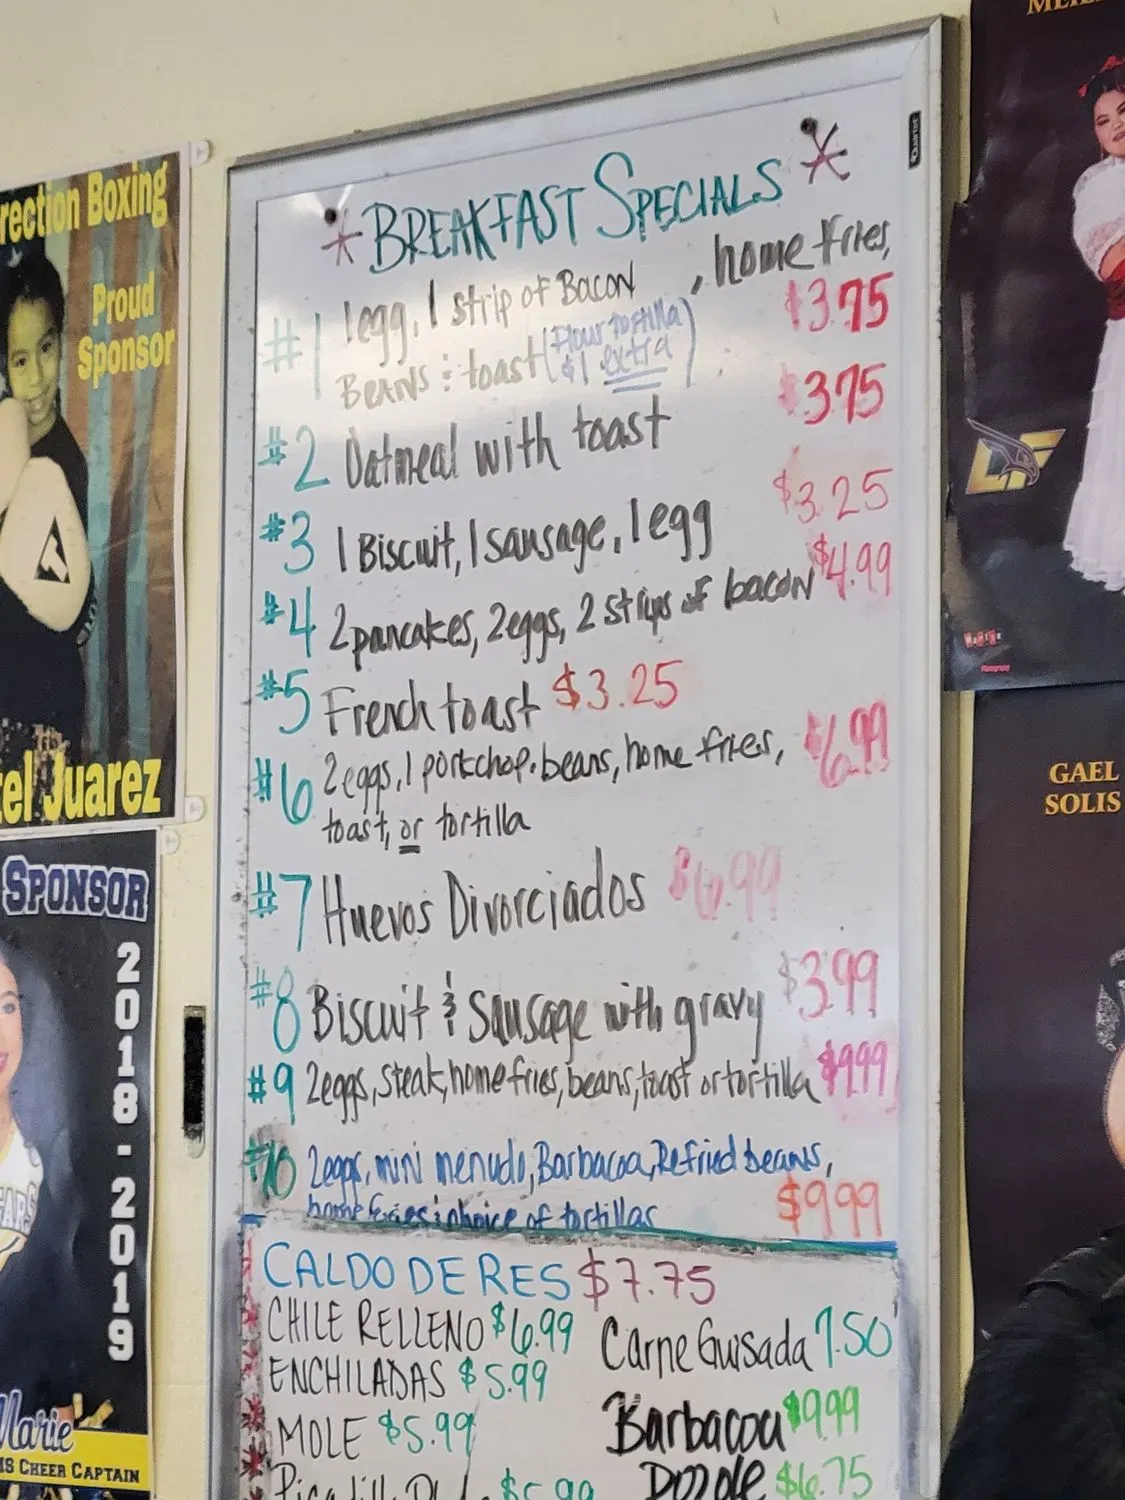 rection Boxing
Proud
Sponsor
tel Juarez
SPONSOR
2018-2019
Marie
CHEER CAPTAIN
Quartet
* BREAKFAST SPECIALS *
#1 1 egg, 1 strip of Bacon, home fries,
BEANS & toast (Flour tortilla $1 extra) $3.75
#2 Oatmeal with toast $3.75
#3 1 Biscuit, 1 sausage, 1 egg $3.25
#4 2 pancakes, 2 eggs, 2 strips of bacon $4.99
#5 French toast $3.25
#6 2 eggs, 1 porkchop, beans, home fries, $6.99
toast, or tortilla
#7 Huevos Divorciados $6.99
#8 Biscuit & Sausage with gravy $3.99
#9 2 eggs, steak, home fries, beans, toast or tortilla $9.99
#10 2 eggs, mini menudo, Barbacoa, Refried beans,
home fries & choice of tortillas $9.99
CALDO DE RES $7.75
CHILE RELLENO $6.99
ENCHILADAS $5.99
MOLE $5.99
$5.99
Carne Guisada 7.50
Barbacoa $9.99
$6.75
GAEL
SOLIS